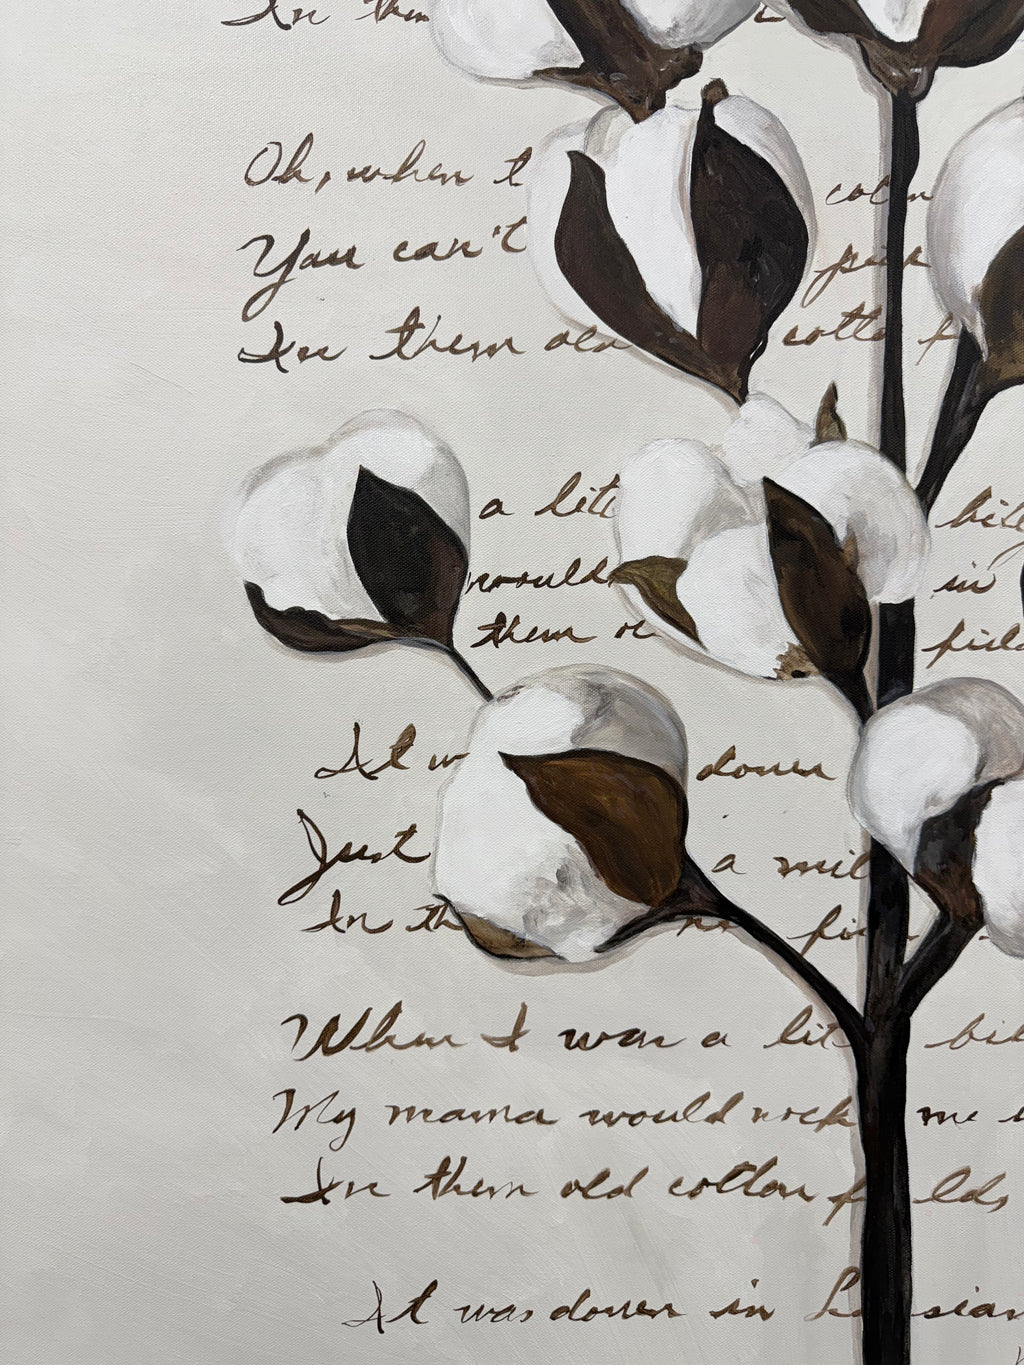 In them
Oh, when t
You can't pick
In them old cotto f
a litt bitty
would in
them ol field
It w down
Just a mil
In th fi
When I was a litt bit
My mama would rock me i
In them old cotton f elds
It was down in L sian